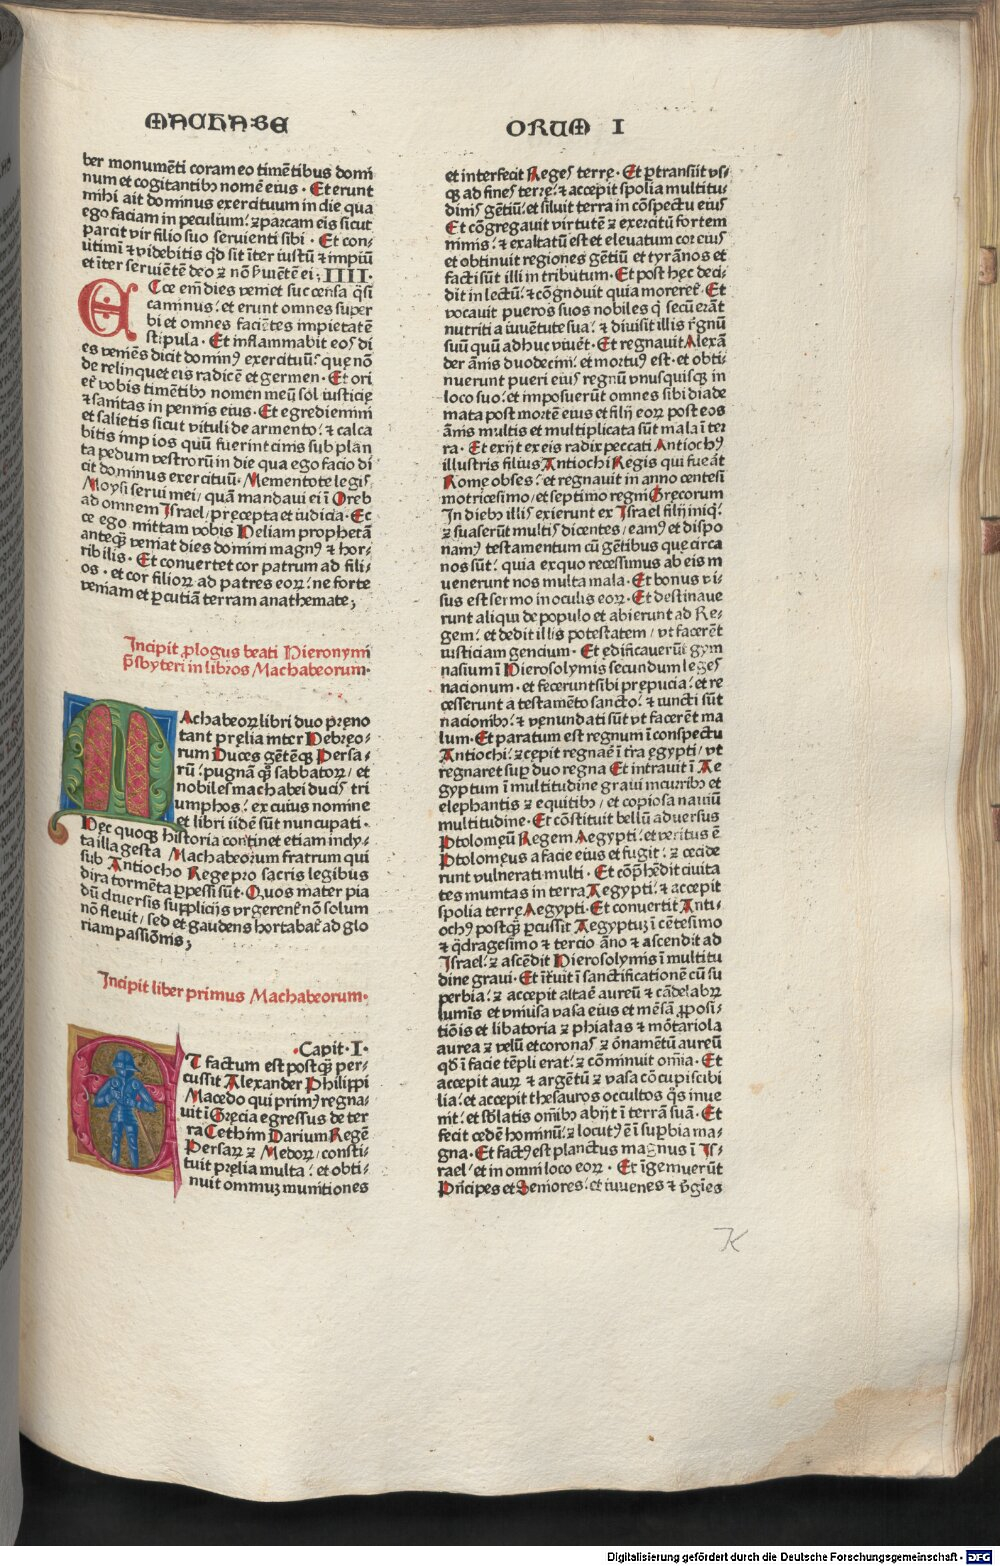 MACHABE
ber monumēti coram eo timētibus domi
num et cogitantibꝫ nomē eius · Et erunt
mihi ait dominus exercituum in die qua
ego faciam in peculium: ⁊ parcam eis sicut
parcit vir filio suo seruienti sibi · Et con⸗
utimī ⁊ videbitis qđ sit īter iustū ⁊ impiū
et īter seruiētē deo ⁊ nō ẜuiētē ei ; IIII ·
ECce em̄ dies veniet succensa q̄si
caminus: et erunt omnes super
bi et omnes faciētes impietatē
stipula · Et inflammabit eos di
es veniēs dicit dominꝰ exercituū: quę nō
derelinquet eis radicē et germen · Et ori
et᷑ vobis timētibꝫ nomen meū sol iusticię
⁊ sanitas in pennis eius · Et egrediemini
et salietis sicut vituli de armento: ⁊ calca
bitis impios quū fuerint cinis sub plan
ta pedum vestrorū in die qua ego facio di
cit dominus exercituū · Mementote legis
Moysi serui mei / quā mandaui ei ī Oreb
ad omnem Israel / pręcepta et iudicia · Ec
ce ego mittam vobis Heliam prophetā
anteqꝫ veniat dies domini magnꝰ ⁊ hor⸗
ribilis · Et conuertet cor patrum ad fili⸗
os · et cor filioꝝ ad patres eoꝝ: ne forte
veniam et ꝑcutiā terram anathemate ;
Incipit ꝓlogus beati Hieronymi
p̄sbyteri in libros Machabeorum ·
MAchabeoꝝ libri duo pręno
tant pręlia inter Hebręo⸗
rum Duces gētēqꝫ Persa⸗
rū: pugnā qꝫ sabbatoꝝ / et
nobiles machabei ducis tri
umphos: ex cuius nomine
et libri iidē sūt nuncupati ·
Hęc quoqꝫ historia continet etiam incly⸗
ta illa gesta Machabeorum fratrum qui
sub Antiocho Rege pro sacris legibus
dira tormēta ꝑpessi sūt · Quos mater pia
dū diuersis supplicijs vrgerent᷑ nō solum
nō fleuit / sed et gaudens hortabat᷑ ad glo
riam passiōnis ;
Incipit liber primus Machabeorum ·
· Capit · I ·
ET factum est postqꝫ per⸗
cussit Alexander Philippi
Macedo qui primꝰ regna⸗
uit ī Gręcia egressus de ter
ra Cethim Darium Regē
Persaꝝ ⁊ Medoꝝ / consti⸗
tuit pręlia multa: et obti⸗
nuit omniuꝫ munitiones
ORUM I
et interfecit Reges terrę · Et ꝑtransiit vs⸗
qꝫ ad fines terrę: ⁊ accepit spolia multitu⸗
dinis gētiū: et siluit terra in cōspectu eius
Et cōgregauit virtutē ⁊ exercitū fortem
nimis: ⁊ exaltatū est et eleuatum cor eius
et obtinuit regiones gētiū et tyrānos et
facti sūt illi in tributum · Et post hęc deci⸗
dit in lectū: ⁊ cōgnouit quia moreret᷑ · Et
vocauit pueros suos nobiles q̄ secū erāt
nutriti a iuuētute sua: ⁊ diuisit illis rēgnū
suū quū adhuc viuēt · Et regnauit Alexā
der ānis duodecim: et mortuꝰ est · et obti⸗
nuerunt pueri eius regnū vnusquisqꝫ in
loco suo: et imposuerūt omnes sibi diade
mata post mortē eius et filij eoꝝ post eos
ānis multis et multiplicata sūt mala ī ter
ra · Et exijt ex eis radix peccati Antiochꝰ
illustris filius Antiochi Regis qui fuerāt
Romę obses: et regnauit in anno centesi
mo tricesimo / et septimo regni Gręcorum
In diebꝫ illis exierunt ex Israel filij iniqꝭ
⁊ suaserūt multis dicentes / eamꝰ et dispo
namꝰ testamentum cū gētibus que circa
nos sūt: quia exquo recessimus ab eis in
uenerunt nos multa mala · Et bonus vi⸗
sus est sermo in oculis eoꝝ · Et destinaue
runt aliqui de populo et abierunt ad Re⸗
gem: et dedit illis potestatem / vt facerēt
iusticiam gencium · Et edificauerūt gym
nasium ī Hierosolymis secundum leges
nacionum · et fecerunt sibi prępucia: et re
cesserunt a testamēto sancto: ⁊ iuncti sūt
nacionibꝫ: ⁊ venundati sūt vt facerēt ma
lum · Et paratum est regnum ī conspectu
Antiochi: ⁊ cępit regnaē ī tra ęgypti / vt
regnaret suꝑ duo regna Et intrauit ī Ae
gyptum ī multitudine graui in curribꝫ et
elephantis ⁊ equitibꝫ / et copiosa nauiū
multitudine · Et cōstituit bellū aduersus
Ptolomęū Regem Aegypti: et veritus ē
Ptolomęus a facie eius et fugit: ⁊ cecide
runt vulnerati multi · Et cōp̄hēdit ciuita
tes munitas in terra Aegypti: ⁊ accepit
spolia terrę Aegypti · Et conuertit Anti⸗
ochꝰ postqꝫ ꝑcussit Aegyptuꝫ ī cētesimo
⁊ q̄dragesimo ⁊ tercio āno ⁊ ascendit ad
Israel: ⁊ ascēdit Hierosolymis ī multitu
dine graui · Et ītᷓuit ī sanctificationē cū su
perbia: ⁊ accepit altaē aureū ⁊ cādelabꝝ
luminis et vniuersa vasa eius et mēsā ꝓposi⸗
tiōis et libatoria ⁊ phialas ⁊ mōtariola
aurea ⁊ velū et coronas ⁊ ōnamētū aureū
qđ ī facie tēpli erat: ⁊ cōminuit om̄ia · Et
accepit auꝝ ⁊ argētū ⁊ vasa cōcupiscibi
lia: et accepit thesauros occultos q̄s inue
nit: et sublatis om̄ibꝫ abijt ī terrā suā · Et
fecit cedē hominū: ⁊ locutꝰ ē ī suꝑbia ma⸗
gna · Et factꝰ est planctus magnus ī Is⸗
rael: et in omni loco eoꝝ · Et īgemuerūt
Principes et Seniores: et iuuenes ⁊ v̄gīes
K
Digitalisierung gefördert durch die Deutsche Forschungsgemeinschaft - DFG